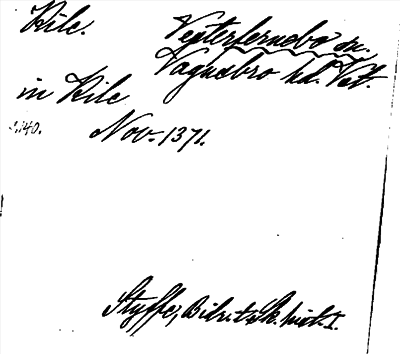 Kile. Vesterfernebo sn.
Vagnsbro hd. Vstm.
in Kile
1:140. Nov. 1371.
Styffe, Bidr. t. Sk. hist. I.